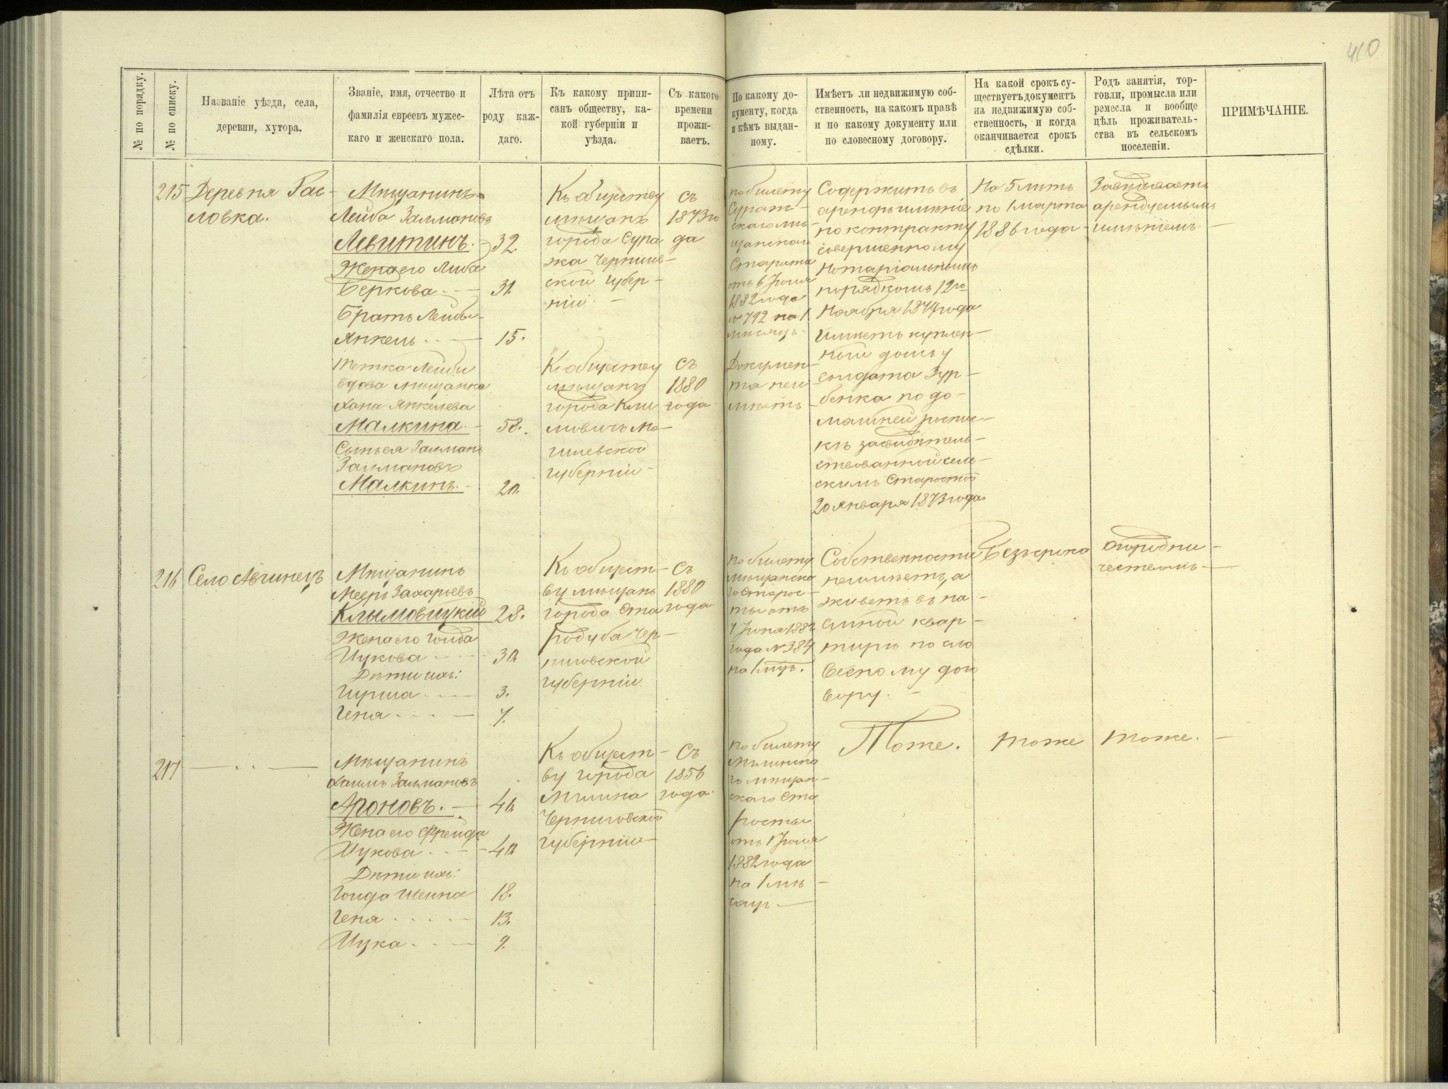 410
№ по порядку.
№ по списку.
Названіе уѣзда, села,
деревни, хутора.
Званіе, имя, отчество и
фамилія евреевъ мужес-
каго и женскаго пола.
Лѣта отъ
роду каж-
даго.
Къ какому припи-
санъ обществу, ка-
кой губерніи и
уѣзда.
Съ какого
времени
прожи-
ваетъ.
По какому до-
кументу, когда
и кѣмъ выдан-
ному.
Имѣетъ ли недвижимую соб-
ственность, на какомъ правѣ
и по какому документу или
по словесному договору.
На какой срокъ су-
ществуетъ документъ
на недвижимую соб-
ственность, и когда
оканчивается срокъ
сдѣлки.
Родъ занятія, тор-
говли, промысла или
ремесла и вообще
цѣль проживатель-
ства въ сельскомъ
поселеніи.
ПРИМѢЧАНІЕ.
215
Деревня Гас-
ловка.
Мѣщанинъ
Лейба Залмановъ
Левитинъ. 32
Жена его Либа
Беркова. 31
Братъ Лейбы
Янкель 15.
Тетка Лейбы
вдова мѣщанка
Хана Янкелева
Малкина. 58.
Сынъ ея Залманъ
Залмановъ
Малкинъ.
Къ обществу
мѣщанъ
города Сура
жа Чернигов-
ской Губер-
ніи
Къ обществу
мѣщанъ
города Кли
мовичъ Мо-
гилевской
губерніи
Съ
1873 го
да
Съ
1880
года
по билету
Сураж-
скаго мѣ-
щанскаго
Старосты
отъ 6 Іюля
1882 года
№ 792 на 1
мѣсяцъ
Докумен-
та не и
мѣетъ
Содержитъ въ
арендѣ имѣніе
по контракту
совершенному
Нотаріальнымъ
порядкомъ 12 го
Ноября 1879 года
Имѣетъ куплен-
ный домъ у
солдата Зуб-
по до-
машней роспис-
кѣ засвидѣтель-
ствованной сель-
скимъ Старостой
20 Января 1873 года
На 5 лѣтъ
по 1 марта
1886 года
Завѣдываетъ
арендуемымъ
имѣніемъ
216
Село
Мѣщанинъ
Мееръ Захарьевъ
Климовицкій 28.
Жена его Голда
Ицкова
Дѣти ихъ:
Гирша 3.
Геня
Къ общест-
ву мѣщанъ
города Ста
родуба Чер-
ниговской
губерніи
Съ
1880
года
по билету
мѣщанска
го Старос-
ты отъ
Іюля 1882
года № 384
на 1 мѣс.
Собственности
не имѣетъ, а
живетъ въ на
емной квар-
тирѣ по сло
весному дого
вору.
Безсрочно
огородни
чествомъ
217
Мѣщанинъ
Хаимъ Залмановъ
Ароновъ.
Жена его Фрейда
Ицкова
Дѣти ихъ:
Голда Шейна 18.
Геня 13.
Ицка 9.
Къ общест-
ву города
Мглина
Черниговской
губерніи
Съ
1856
года
по билету
Мглинска
го мѣщан-
скаго Ста
росты
отъ 1 Іюля
1882 года
на 1 мѣ
сяцъ
Тоже.
тоже
тоже.